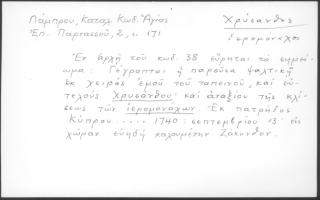 Λάμπρου, Καταλ. Κωδ. Ἁγίου Χρύσανθος
Ὄρ. 2, σ. 171 ἱερομόναχος
Ἐν ἀρχῇ τοῦ κωδ. 38 εὕρηται τὸ σημείωμα: Γέγραπται ἡ παροῦσα ψαλτικὴ
ἐκ χειρὸς ἐμοῦ τοῦ ταπεινοῦ, καὶ εὐτελοῦς Χρυσάνθου καὶ ἀναξίου τῆς κλίσεως τῶν ἱερομονάχων. Ἐκ πατρίδος
Κύπρου ..... 1740: σεπτεμβρίου 13: εἰς
χώραν εὐηβῆ καλουμένην Ζάκυνθον.